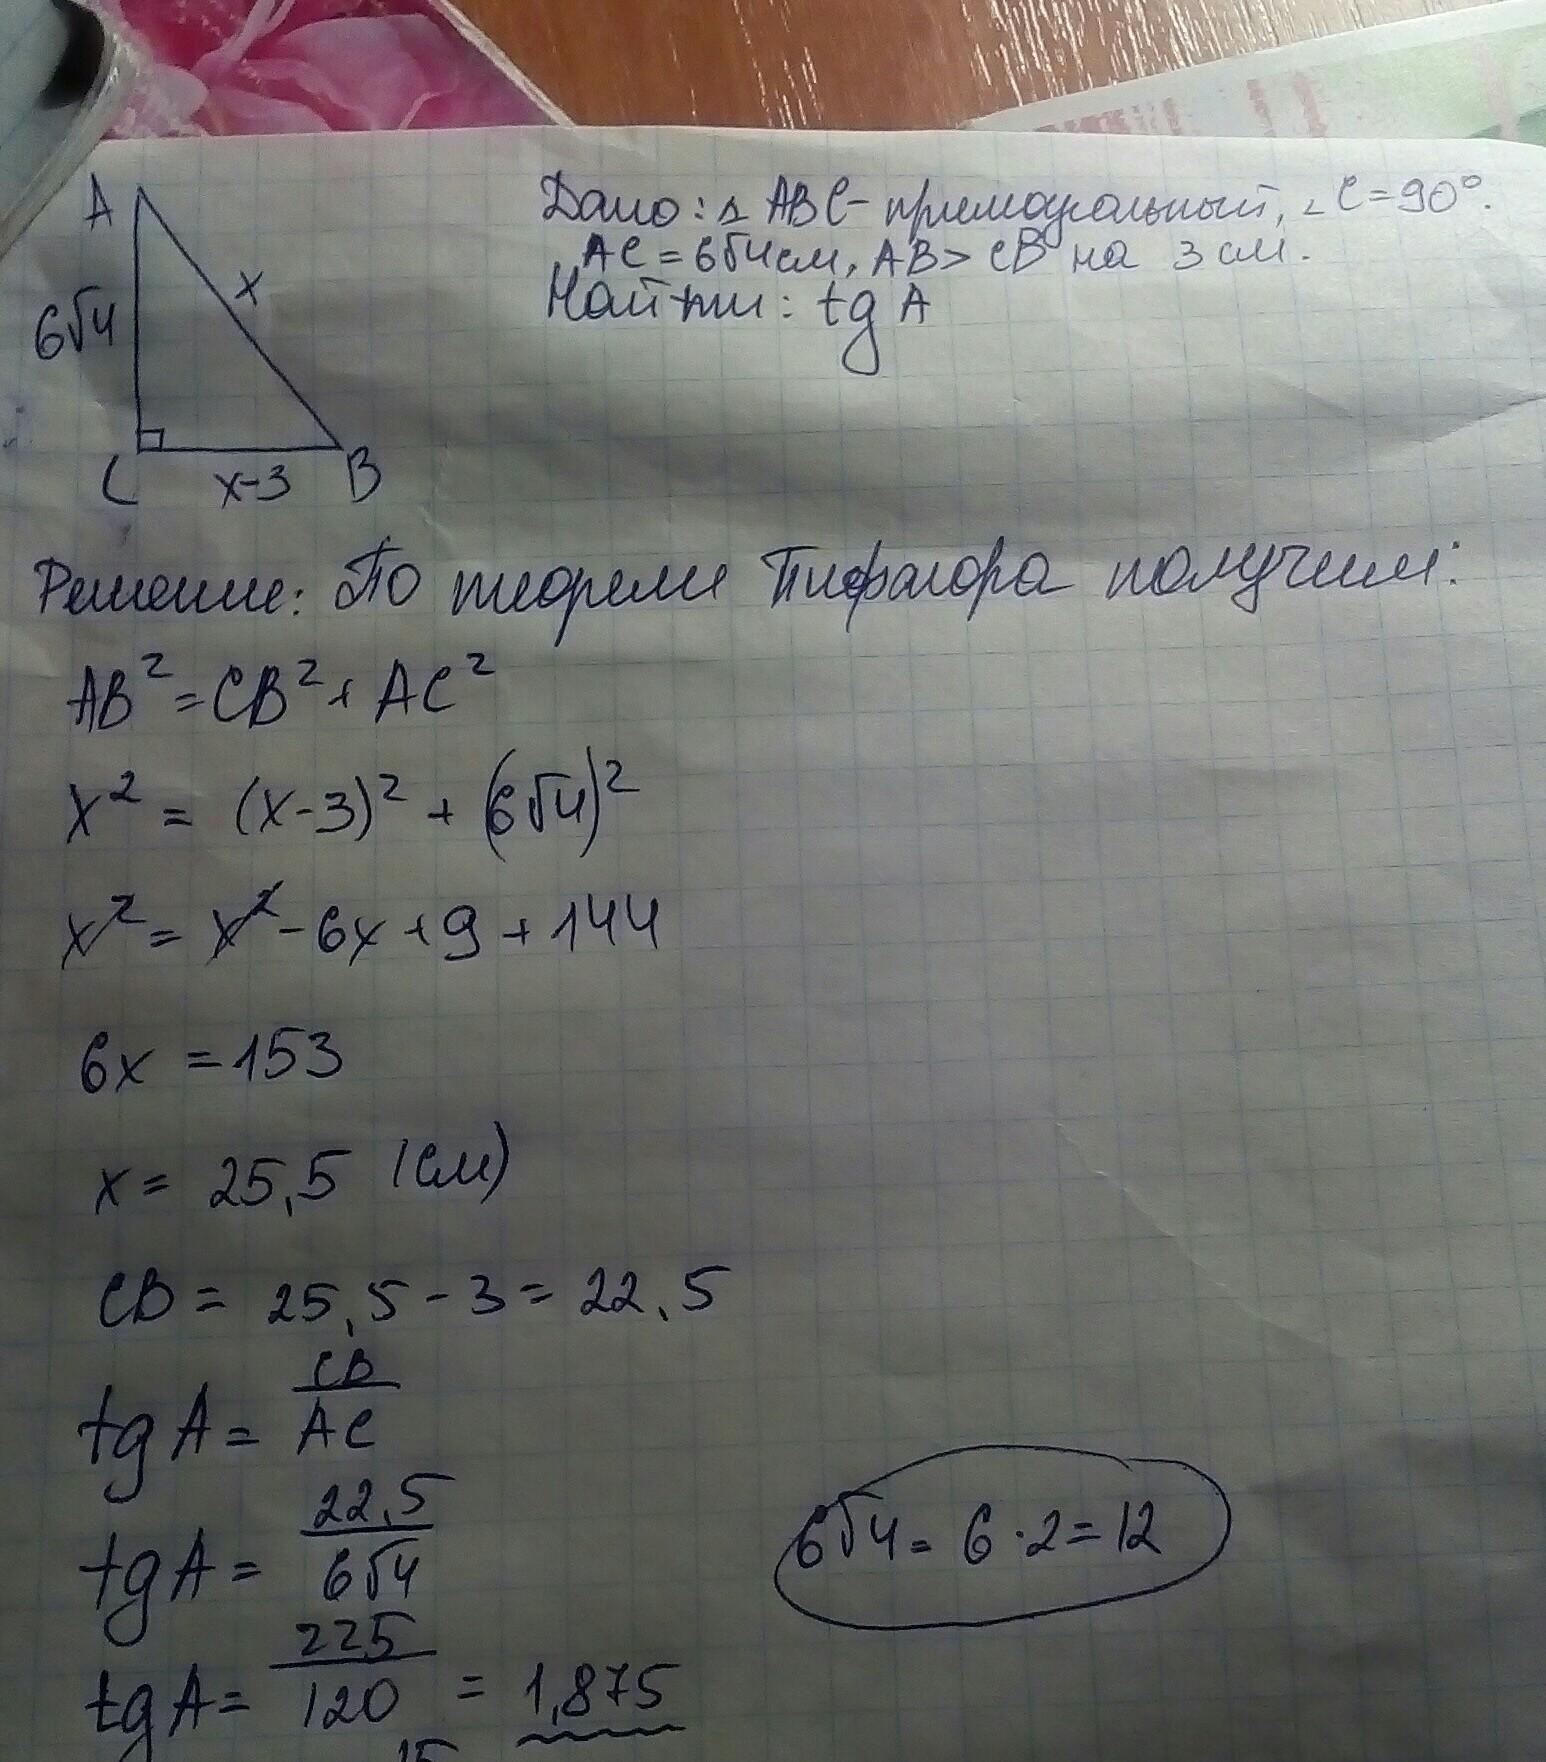 A
6√4
x
C
x-3
B
Дано: △ ABC - прямоугольный, ∠C=90°.
AC = 6√4 см, AB > CB на 3 см.
Найти: tg A
Решение: По теореме Пифагора получим:
AB² = CB² + AC²
x² = (x-3)² + (6√4)²
x² = x² - 6x + 9 + 144
6x = 153
x = 25,5 (см)
CB = 25,5 - 3 = 22,5
tg A = CB/AC
tg A = 22,5/6√4
6√4 = 6·2 = 12
tg A = 225/120 = 1,875
15